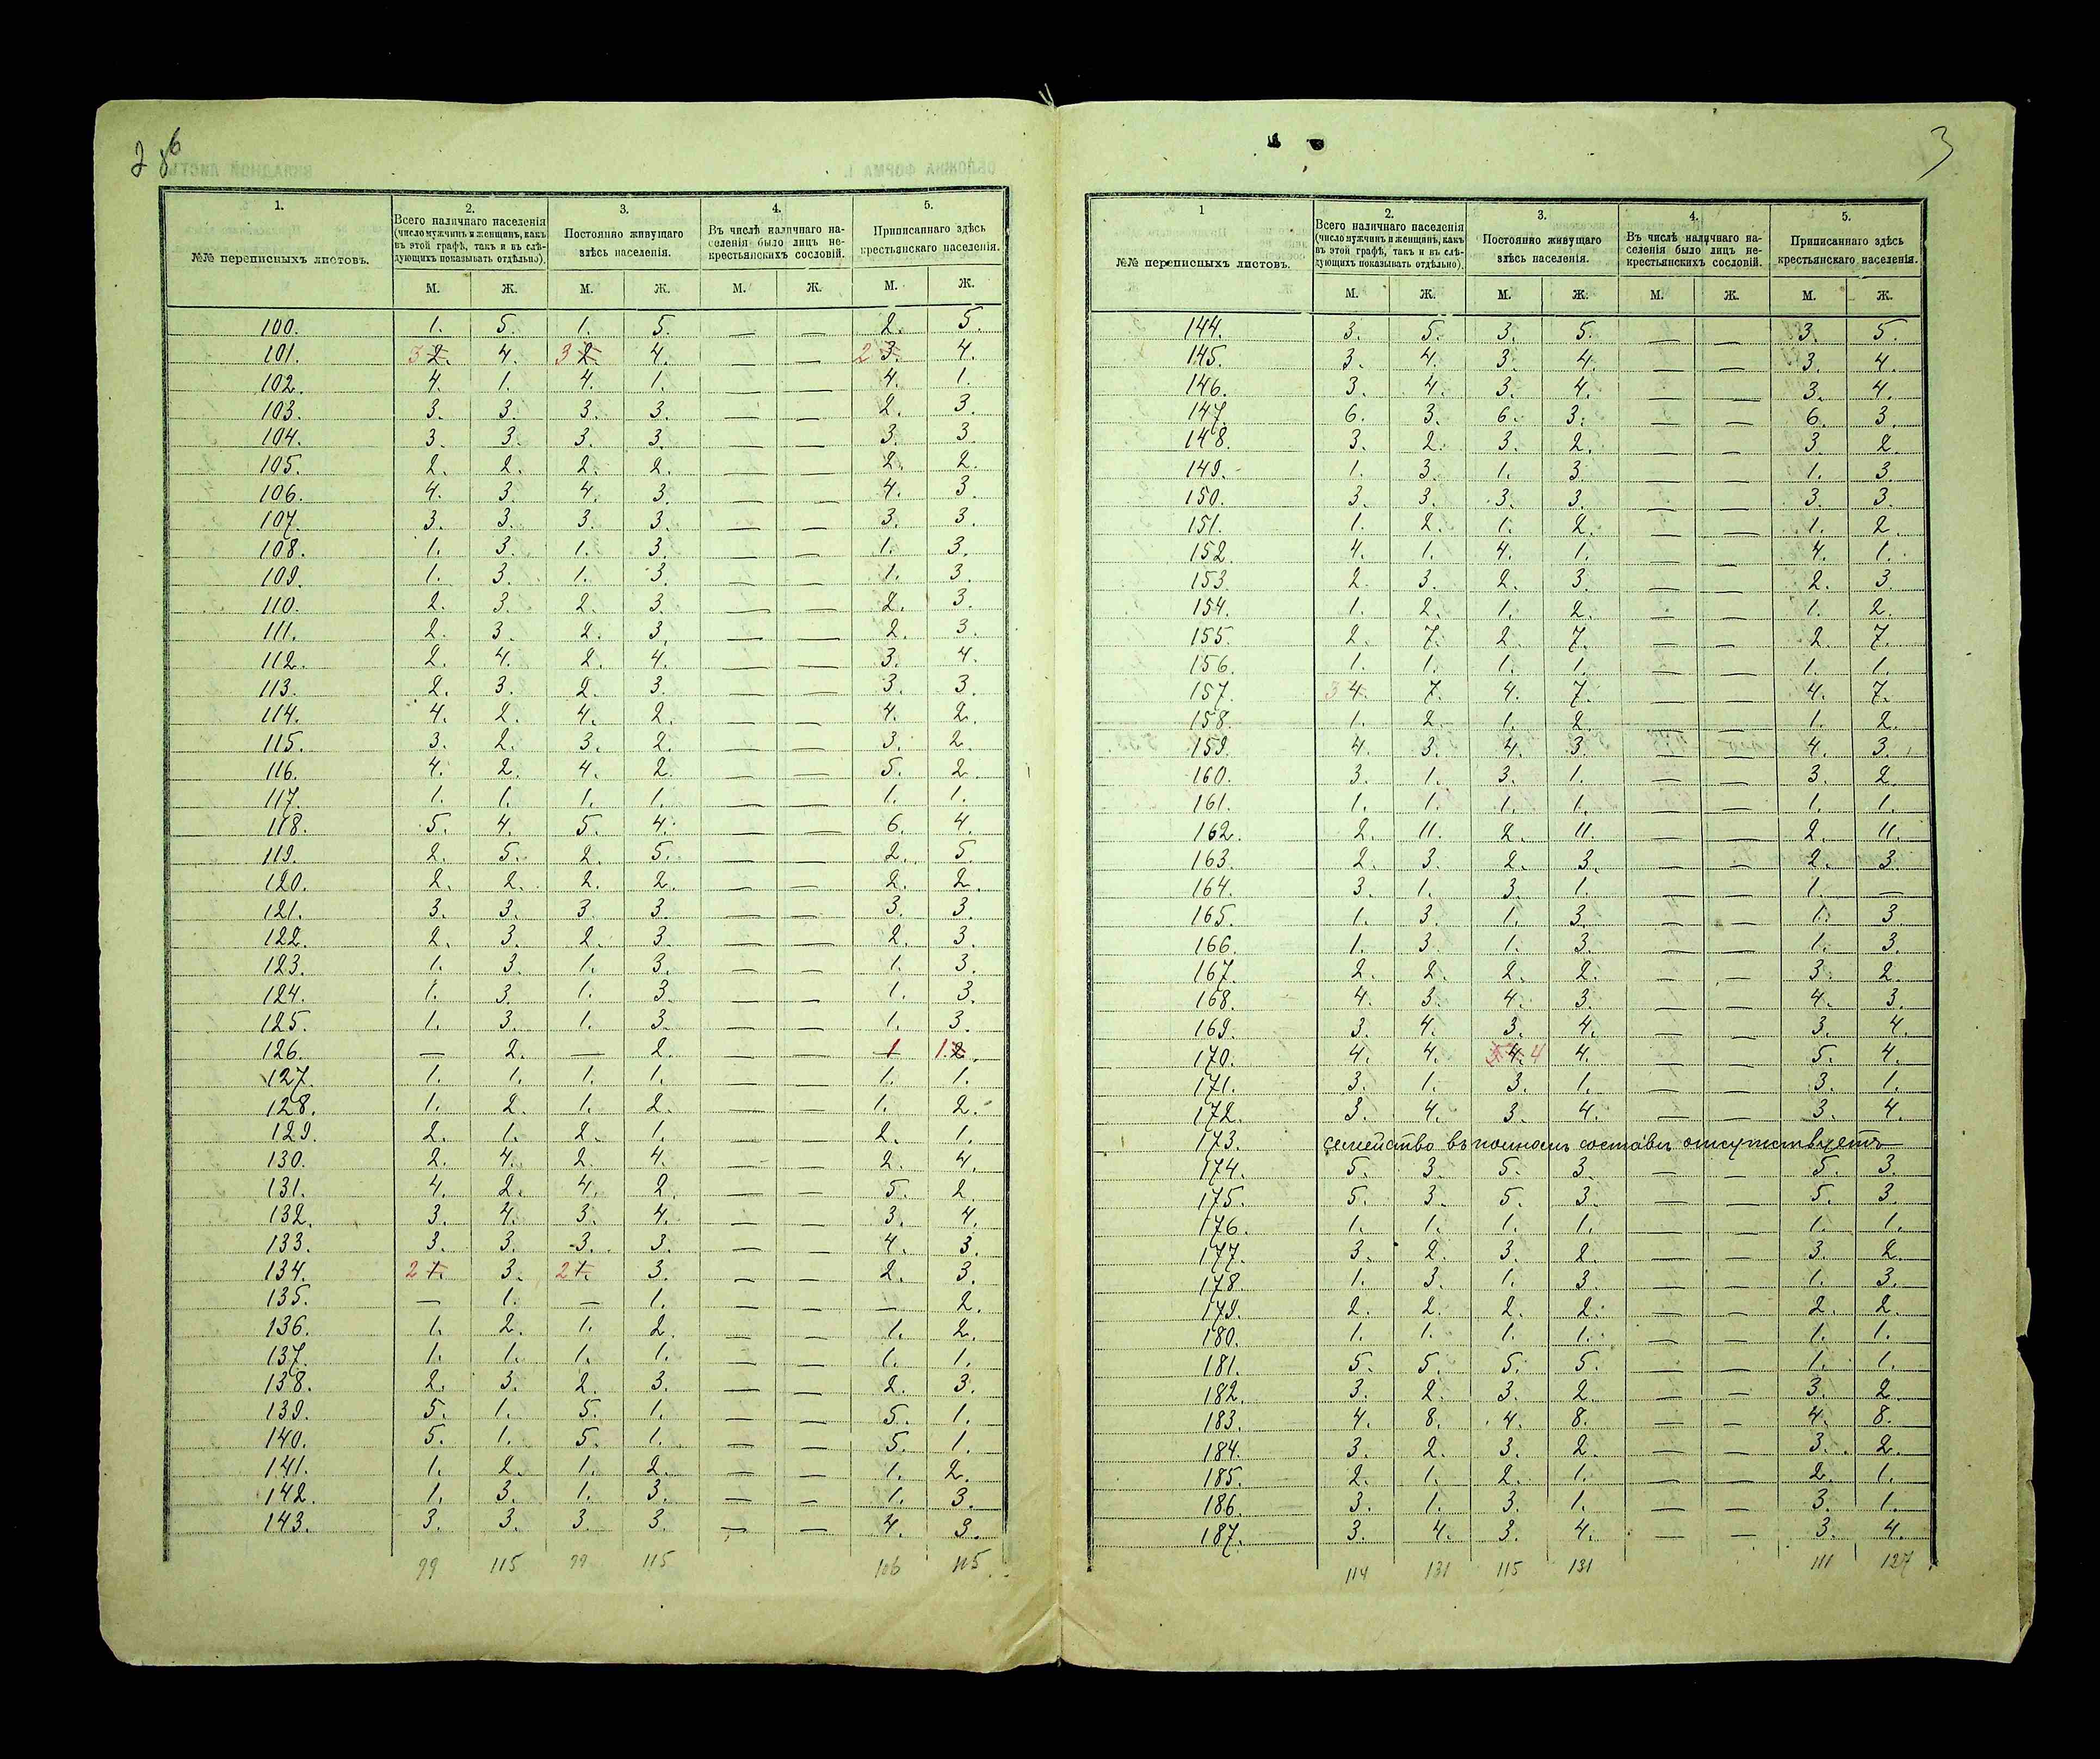 2 об
1.
2.
3.
4.
5.
№№ переписныхъ листовъ.
Всего наличнаго населенія (число мужчинъ и женщинъ, какъ въ этой графѣ, такъ и въ слѣдующихъ показывать отдѣльно).
Постоянно живущаго здѣсь населенія.
Въ числѣ наличнаго населенія было лицъ не-крестьянскихъ сословій.
Приписаннаго здѣсь крестьянскаго населенія.
М. Ж. М. Ж. М. Ж. М. Ж.
100. 1. 5. 1. 5. — — 2. 5.
101. 3 2. 4. 3 2. 4. — — 2 3. 4.
102. 4. 1. 4. 1. — — 4. 1.
103. 3. 3. 3. 3. — — 2. 3.
104. 3. 3. 3. 3. — — 3. 3.
105. 2. 2. 2. 2. — — 2. 2.
106. 4. 3. 4. 3. — — 4. 3.
107. 3. 3. 3. 3. — — 3. 3.
108. 1. 3. 1. 3. — — 1. 3.
109. 1. 3. 1. 3. — — 1. 3.
110. 2. 3. 2. 3. — — 2. 3.
111. 2. 3. 2. 3. — — 2. 3.
112. 2. 4. 2. 4. — — 3. 4.
113. 2. 3. 2. 3. — — 3. 3.
114. 4. 2. 4. 2. — — 4. 2.
115. 3. 2. 3. 2. — — 3. 2.
116. 4. 2. 4. 2. — — 5. 2.
117. 1. 1. 1. 1. — — 1. 1.
118. 5. 4. 5. 4. — — 6. 4.
119. 2. 5. 2. 5. — — 2. 5.
120. 2. 2. 2. 2. — — 2. 2.
121. 3. 3. 3. 3. — — 3. 3.
122. 2. 3. 2. 3. — — 2. 3.
123. 1. 3. 1. 3. — — 1. 3.
124. 1. 3. 1. 3. — — 1. 3.
125. 1. 3. 1. 3. — — 1. 3.
126. — 2. — 2. — — 1 1.2.
127. 1. 1. 1. 1. — — 1. 1.
128. 1. 2. 1. 2. — — 1. 2.
129. 2. 1. 2. 1. — — 2. 1.
130. 2. 4. 2. 4. — — 2. 4.
131. 4. 2. 4. 2. — — 5. 2.
132. 3. 4. 3. 4. — — 3. 4.
133. 3. 3. 3. 3. — — 4. 3.
134. 2 1. 3. 2 1. 3. — — 2. 3.
135. — 1. — 1. — — — 2.
136. 1. 2. 1. 2. — — 1. 2.
137. 1. 1. 1. 1. — — 1. 1.
138. 2. 3. 2. 3. — — 2. 3.
139. 5. 1. 5. 1. — — 5. 1.
140. 5. 1. 5. 1. — — 5. 1.
141. 1. 2. 1. 2. — — 1. 2.
142. 1. 3. 1. 3. — — 1. 3.
143. 3. 3. 3. 3. — — 4. 3.
99 115 99 115 106 115
3
1
2.
3.
4.
5.
№№ переписныхъ листовъ.
Всего наличнаго населенія (число мужчинъ и женщинъ, какъ въ этой графѣ, такъ и въ слѣдующихъ показывать отдѣльно).
Постоянно живущаго здѣсь населенія.
Въ числѣ наличнаго населенія было лицъ не-крестьянскихъ сословій.
Приписаннаго здѣсь крестьянскаго населенія.
М. Ж. М. Ж. М. Ж. М. Ж.
144. 3. 5. 3. 5. — — 3. 5.
145. 3. 4. 3. 4. — — 3. 4.
146. 3. 4. 3. 4. — — 3. 4.
147 6. 3. 6. 3. — — 6. 3.
148 3. 2. 3. 2. — — 3. 2.
149. 1. 3. 1. 3. — — 1. 3.
150. 3. 3. 3. 3. — — 3. 3.
151. 1. 2. 1. 2. — — 1. 2.
152 4. 1. 4. 1. — — 4. 1.
153 2. 3. 2. 3. — — 2. 3.
154. 1. 2. 1. 2. — — 1. 2.
155. 2. 7. 2. 7. — — 2. 7.
156 1. 1. 1. 1. — — 1. 1.
157. 3 4. 7. 4. 7. — — 4. 7.
158. 1. 2. 1. 2 — — 1. 2.
159. 4. 3. 4. 3. — — 4. 3.
160. 3. 1. 3. 1. — — 3. 2.
161. 1. 1. 1. 1. — — 1. 1.
162. 2. 11. 2. 11. — — 2. 11.
163. 2. 3. 2. 3. — — 2. 3.
164. 3. 1. 3. 1. — — 1. —
165. 1. 3. 1. 3. — — 1. 3.
166. 1. 3. 1. 3. — — 1. 3.
167. 2. 2. 2. 2. — — 3. 2.
168. 4. 3. 4. 3. — — 4. 3.
169. 3. 4. 3. 4. — — 3. 4.
170. 4. 4. 5 4. 4 4. — — 5. 4.
171. 3. 1. 3. 1. — — 3. 1.
172. 3. 4. 3. 4. — — 3. 4.
173. семейство въ полномъ составѣ отсутствуетъ
174. 5. 3. 5. 3. — — 5. 3.
175. 5. 3. 5. 3. — — 5. 3.
176. 1. 1. 1. 1. — — 1. 1.
177. 3. 2. 3. 2. — — 3. 2.
178. 1. 3. 1. 3. — — 1. 3.
179. 2. 2. 2. 2. — — 2. 2.
180. 1. 1. 1. 1. — — 1. 1.
181. 5. 5. 5. 5. — — 1. 1.
182. 3. 2. 3. 2. — — 3. 2.
183. 4. 8. 4. 8. — — 4. 8.
184. 3. 2. 3. 2. — — 3. 2.
185. 2. 1. 2. 1. — — 2. 1.
186. 3. 1. 3. 1. — — 3. 1.
187. 3. 4. 3. 4. — — 3. 4.
114 131 115 131 111 127